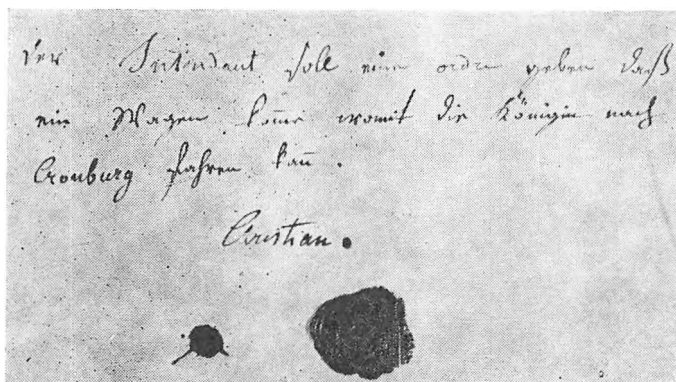 der Intendant soll eine ordre geben daß
ein Wagen kom̄e womit die Königin nach
Cronburg fahren kan̄.
Christian.